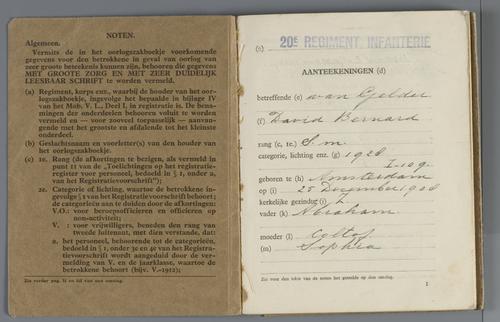 NOTEN.
Algemeen.
Vermits de in het oorlogszakboekje voorkomende
gegevens voor den betrokkene in geval van oorlog van
zeer groote beteekenis kunnen zijn, behooren die gegevens
MET GROOTE ZORG EN MET ZEER DUIDELIJK
LEESBAAR SCHRIFT te worden vermeld.
(a) Regiment, korps enz., waarbij de houder van het oor-
logszakboekje, ingevolge het bepaalde in bijlage IV
van het Mob. V. L., Deel I, in registratie is. De benu-
mingen der onderdeelen behooren voluit te worden
vermeld en — voor zooveel toepasselijk — aanvan-
gende met het grootste en afdalende tot het kleinste
onderdeel.
(b) Geslachtsnaam en voorletter(s) van den houder van
het oorlogszakboekje.
(c) 1e. Rang (de afkortingen te bezigen, als vermeld in
punt 11 van de „Toelichtingen op het registratie-
register voor personeel, bedoeld in § 1, onder a,
van het Registratievoorschrift");
2e. Categorie of lichting, waartoe de betrokkene in-
gevolge § 1 van het Registratievoorschrift behoort;
de categorieën aan te duiden door de afkortingen:
V.O.: voor beroepsofficieren en officieren op
non-activiteit;
V. : voor vrijwilligers, beneden den rang van
tweede luitenant, met dien verstande, dat:
a. het personeel, behoorende tot de categorieën,
bedoeld in § 1, onder 3e en 4e van het Registra-
tievoorschrift wordt aangeduid door de ver-
melding van V. en de jaarklasse, waartoe de
betrokkene behoort (bijv. V.-1912);
Zie verder pag. II en III van den omslag.
20E REGIMENT INFANTERIE
AANTEEKENINGEN (d)
betreffende (e) van Gelder
(f) David Bernard
rang (c, 1e.) S.m.
categorie, lichting enz. (g) 1928
geboren te (h) Amsterdam
op (i) 25 December 1908
kerkelijke gezindte (j)
vader (k) Abraham
moeder (l)
(m) Sophia
Zie voor den tekst van de noten het gestelde op den omslag.
1